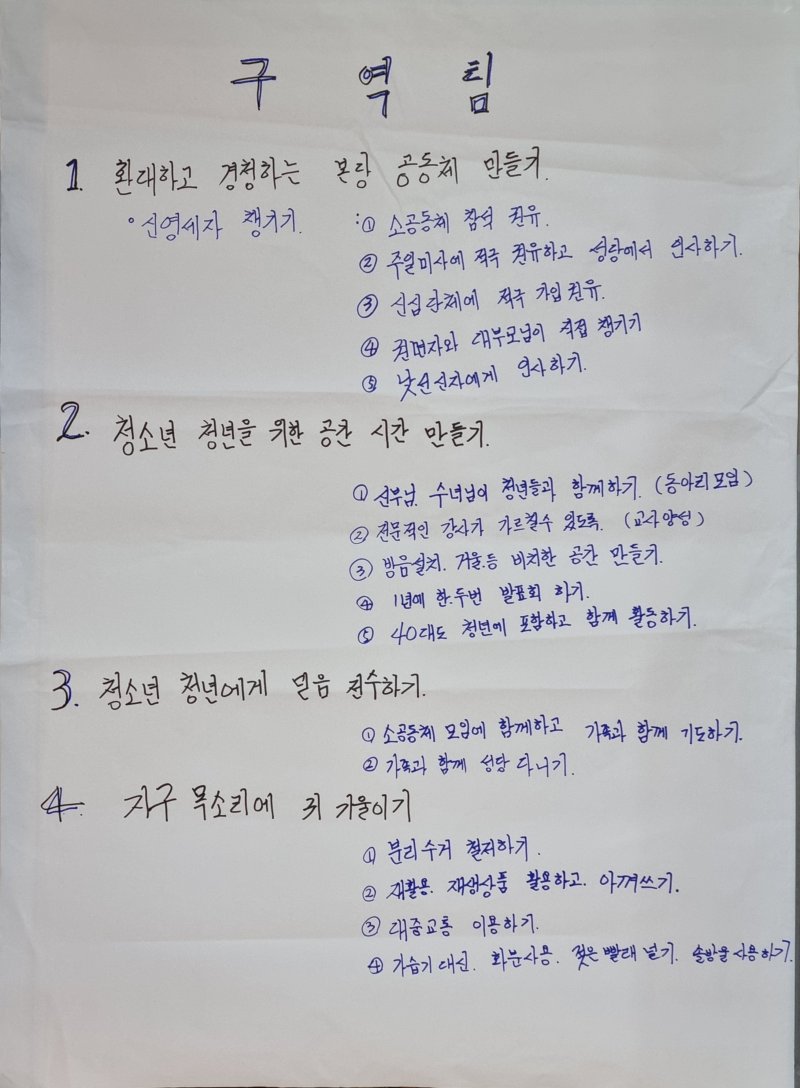 구 역 팀
1. 환대하고 경청하는 본당 공동체 만들기.
° 신영세자 챙기기. : ① 소공동체 참석 권유.
② 주일미사에 적극 권유하고 성당에서 인사하기.
③ 신심단체에 적극 가입권유.
④ 권면자와 대부모님이 직접 챙기기
⑤ 낯선신자에게 인사하기.
2. 청소년 청년을 위한 공간 시간 만들기.
① 신부님. 수녀님이 청년들과 함께하기. (동아리모임)
② 전문적인 강사가 가르칠수 있도록. (교사양성)
③ 방음설치. 거울.등 비치한 공간 만들기.
④ 1년에 한.두번 발표회 하기.
⑤ 40대도 청년에 포함하고 함께 활동하기.
3. 청소년 청년에게 믿음 전수하기.
① 소공동체 모임에 함께하고 가족과 함께 기도하기.
② 가족과 함께 성당 다니기.
4. 지구 목소리에 귀 기울이기
① 분리수거 철저하기.
② 재활용. 재생상품 활용하고. 아껴쓰기.
③ 대중교통 이용하기.
④ 가습기 대신. 화분사용. 젖은빨래 널기. 솔방울사용하기.